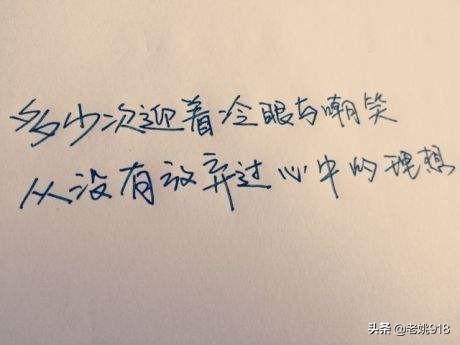 多少次迎着冷眼与嘲笑
从没有放弃过心中的理想
头条 @老姚918